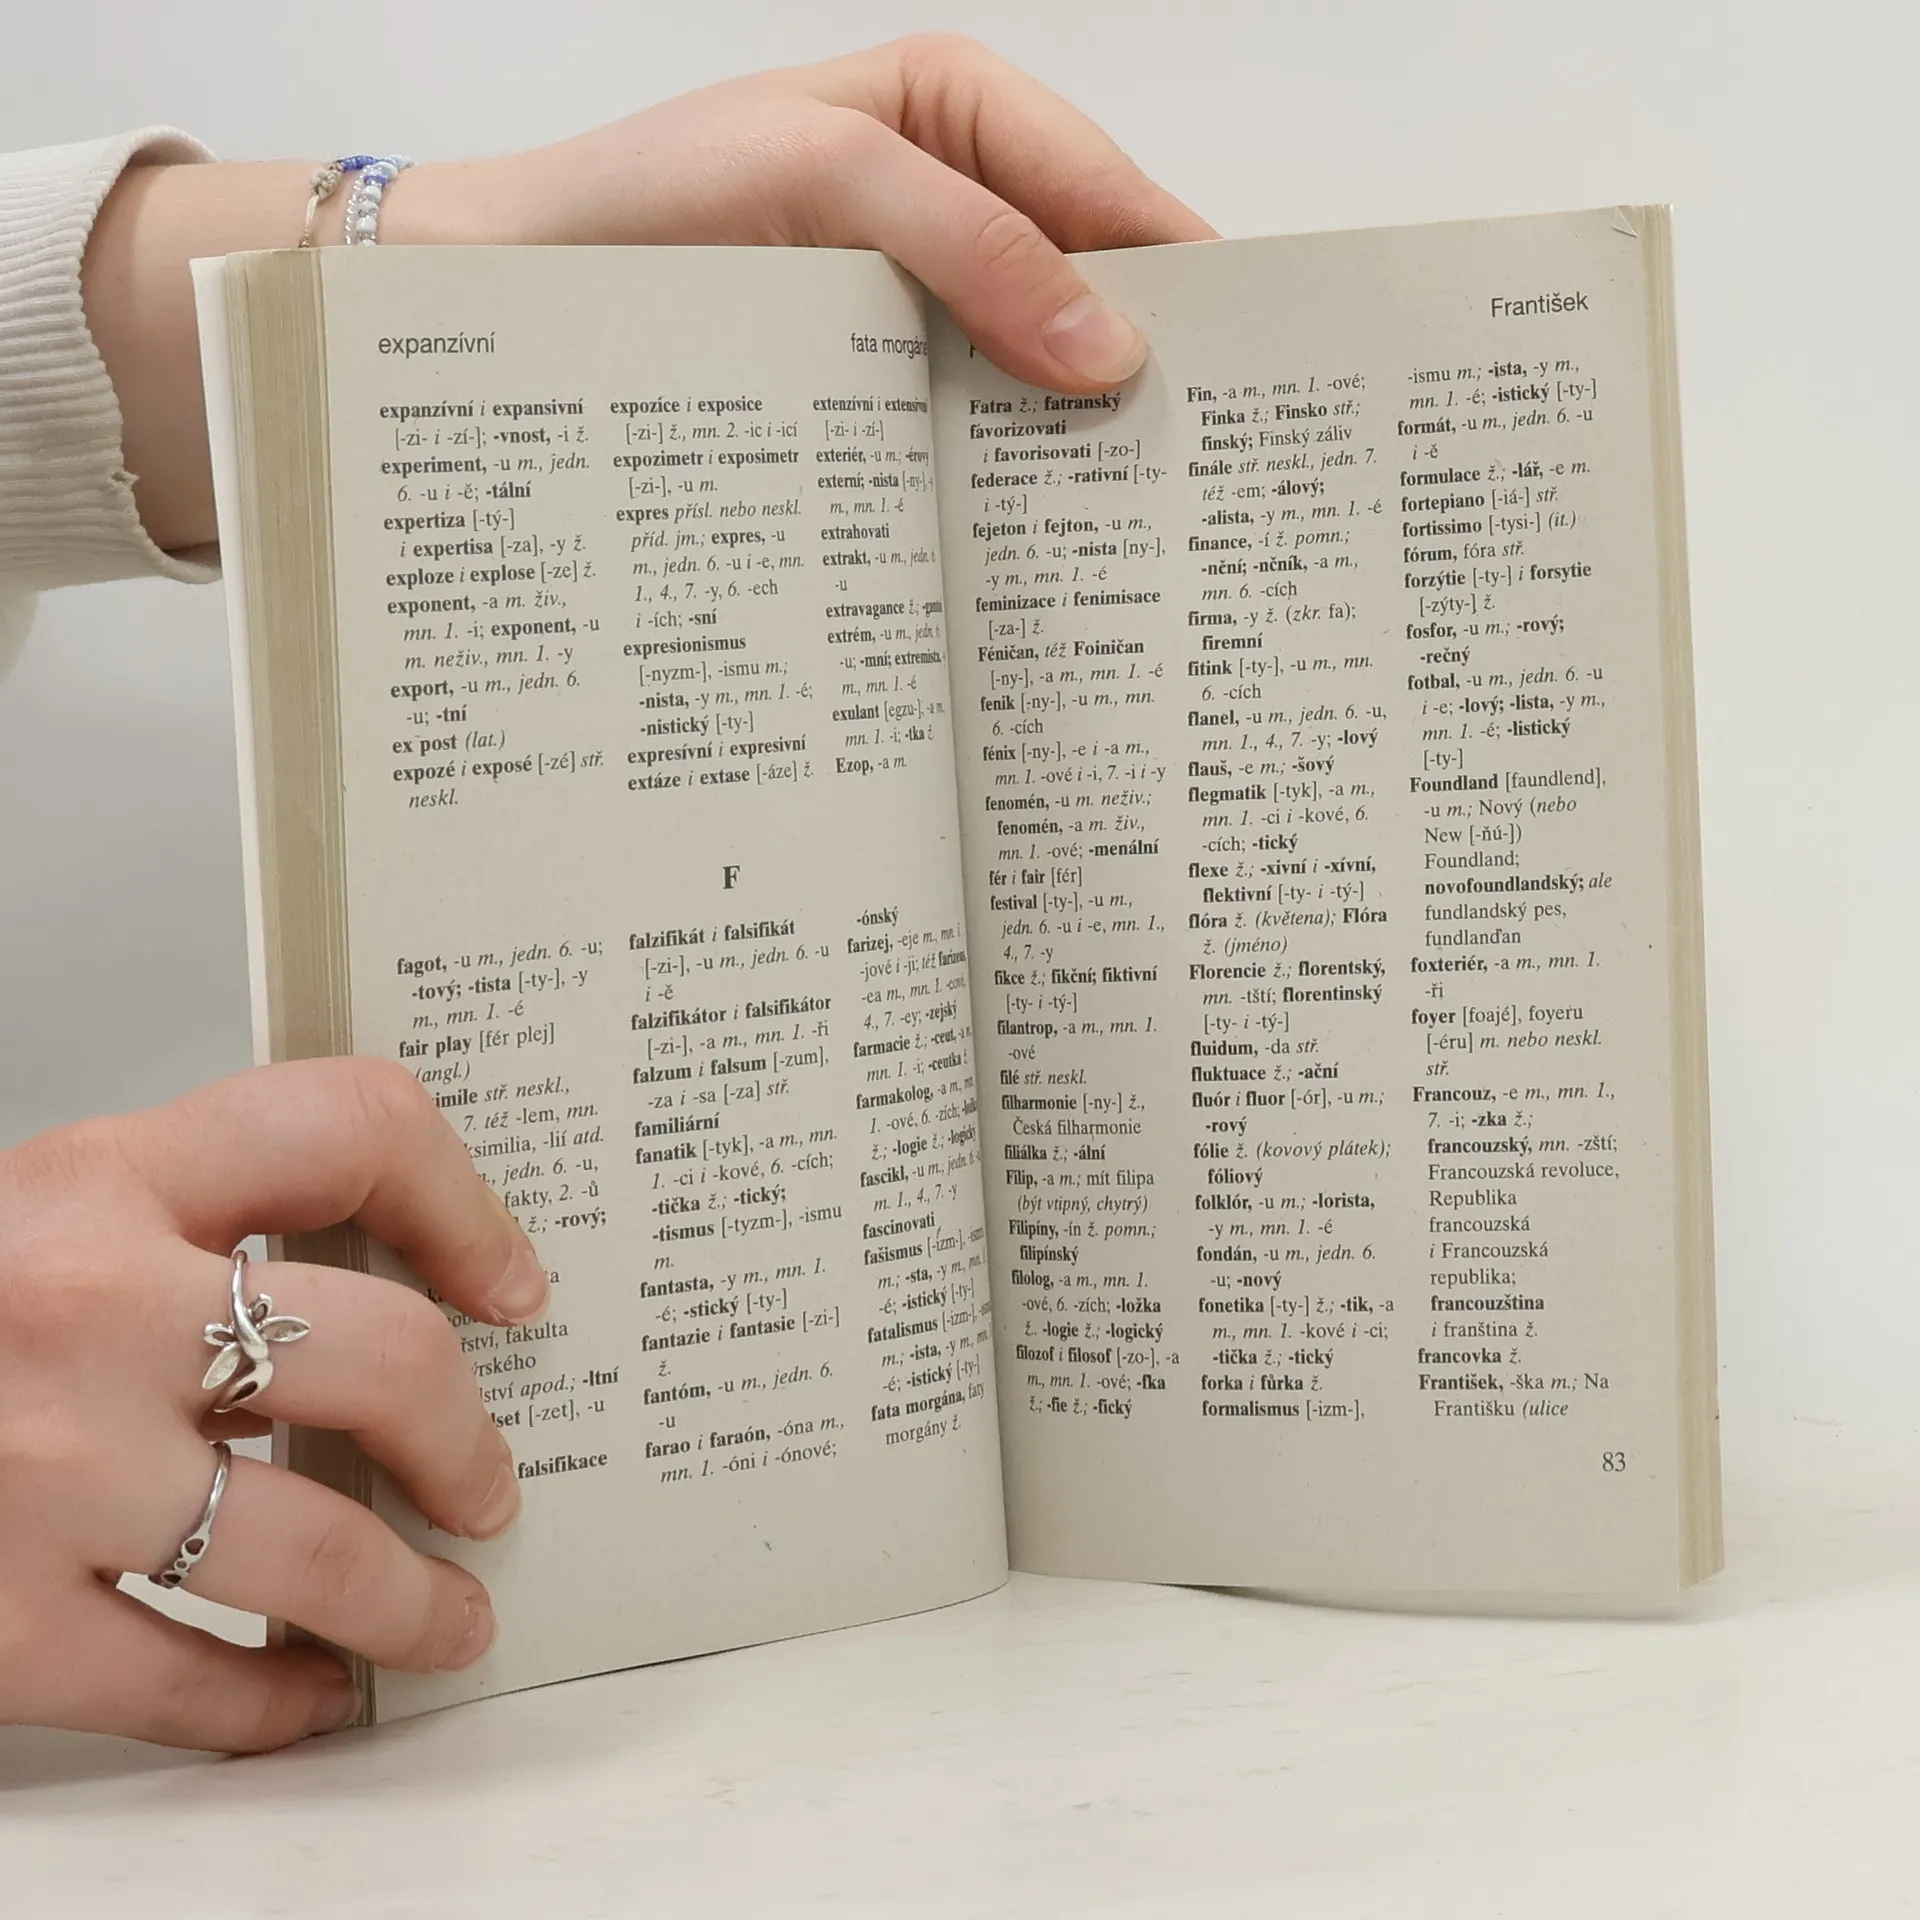 expanzívní
fata morgána
expanzívní i expansivní
[-zi- i -zí-]; -vnost, -i ž.
experiment, -u m., jedn.
6. -u i -ě; -tální
expertiza [-tý-]
i expertisa [-za], -y ž.
exploze i explose [-ze] ž.
exponent, -a m. živ.,
mn. 1. -i; exponent, -u
m. neživ., mn. 1. -y
export, -u m., jedn. 6.
-u; -tní
ex post (lat.)
expozé i exposé [-zé] stř.
neskl.
expozice i exposice
[-zi-] ž., mn. 2. -ic i -icí
expozimetr i exposimetr
[-zi-], -u m.
expres přísl. nebo neskl.
příd. jm.; expres, -u
m., jedn. 6. -u i -e, mn.
1., 4., 7. -y, 6. -ech
i -ích; -sní
expresionismus
[-nyzm-], -ismu m.;
-nista, -y m., mn. 1. -é;
-nistický [-ty-]
expresívní i expresivní
extáze i extase [-áze] ž.
extenzívní i extensivní
[-zi- i -zí-]
exteriér, -u m.; -érový
externí; -nista [-ny-], -y
m., mn. 1. -é
extrahovati
extrakt, -u m., jedn. 6.
-u
extravagance ž.;
extrém, -u m., jedn. 6.
-u; -mní; extremista, -y
m., mn. 1. -é
exulant [egzu-], -a m.,
mn. 1. -i; -tka ž.
Ezop, -a m.
F
fagot, -u m., jedn. 6. -u;
-tový; -tista [-ty-], -y
m., mn. 1. -é
fair play [fér plej]
(angl.)
stř. neskl.,
7. též -lem, mn.
-lií atd.
jedn. 6. -u,
fakty, 2. -ů
ž.; -rový;
fakulta
apod.; -ltní
[-zet], -u
falsifikace
falzifikát i falsifikát
[-zi-], -u m., jedn. 6. -u
i -ě
falzifikátor i falsifikátor
[-zi-], -a m., mn. 1. -ři
falzum i falsum [-zum],
-za i -sa [-za] stř.
familiární
fanatik [-tyk], -a m., mn.
1. -ci i -kové, 6. -cích;
-tička ž.; -tický;
-tismus [-tyzm-], -ismu
m.
fantasta, -y m., mn. 1.
-é; -stický [-ty-]
fantazie i fantasie [-zi-]
ž.
fantóm, -u m., jedn. 6.
-u
farao i faraón, -óna m.,
mn. 1. -óni i -ónové;
-ónský
farizej, -eje m., mn. 1.
-jové i -ji; též farizeus,
-ea m., mn. 1. -eové,
4., 7. -ey; -zejský
farmacie ž.; -ceut, -a m.,
mn. 1. -i; -ceutka ž.
farmakolog, -a m., mn.
1. -ové, 6. -zích;
ž.; -logie ž.; -logický
fascikl, -u m., jedn. 6. -u
m. 1., 4., 7. -y
fascinovati
fašismus [-izm-], -ismu
m.; -sta, -y m., mn. 1.
-é; -istický [-ty-]
fatalismus [-izm-], -ismu
m.; -ista, -y m., mn. 1.
-é; -istický [-ty-]
fata morgána, faty
morgány ž.
František
Fatra ž.; fatranský
favorizovati
i favorisovati [-zo-]
federace ž.; -rativní [-ty-
i -tý-]
fejeton i fejton, -u m.,
jedn. 6. -u; -nista [ny-],
-y m., mn. 1. -é
feminizace i fenimisace
[-za-] ž.
Féničan, též Foiničan
[-ny-], -a m., mn. 1. -é
fenik [-ny-], -u m., mn.
6. -cích
fénix [-ny-], -e i -a m.,
mn. 1. -ové i -i, 7. -i i -y
fenomén, -u m. neživ.;
fenomén, -a m. živ.,
mn. 1. -ové; -menální
fér i fair [fér]
festival [-ty-], -u m.,
jedn. 6. -u i -e, mn. 1.,
4., 7. -y
fikce ž.; fikční; fiktivní
[-ty- i -tý-]
filantrop, -a m., mn. 1.
-ové
filé stř. neskl.
filharmonie [-ny-] ž.,
Česká filharmonie
filiálka ž.; -ální
Filip, -a m.; mít filipa
(být vtipný, chytrý)
Filipíny, -ín ž. pomn.;
filipínský
filolog, -a m., mn. 1.
-ové, 6. -zích; -ložka
ž.. -logie ž.; -logický
filozof i filosof [-zo-], -a
m., mn. 1. -ové; -fka
ž.; -fie ž.; -fický
Fin, -a m., mn. 1. -ové;
Finka ž.; Finsko stř.;
finský; Finský záliv
finále stř. neskl., jedn. 7.
též -em; -álový;
-alista, -y m., mn. 1. -é
finance, -í ž. pomn.;
-nční; -nčník, -a m.,
mn. 6. -cích
firma, -y ž. (zkr. fa);
firemní
fitink [-ty-], -u m., mn.
6. -cích
flanel, -u m., jedn. 6. -u,
mn. 1., 4., 7. -y; -lový
flauš, -e m.; -šový
flegmatik [-tyk], -a m.,
mn. 1. -ci i -kové, 6.
-cích; -tický
flexe ž.; -xivní i -xívní,
flektivní [-ty- i -tý-]
flóra ž. (květena); Flóra
ž. (jméno)
Florencie ž.; florentský,
mn. -tští; florentinský
[-ty- i -tý-]
fluidum, -da stř.
fluktuace ž.; -ační
fluór i fluor [-ór], -u m.;
-rový
fólie ž. (kovový plátek);
fóliový
folklór, -u m.; -lorista,
-y m., mn. 1. -é
fondán, -u m., jedn. 6.
-u; -nový
fonetika [-ty-] ž.; -tik, -a
m., mn. 1. -kové i -ci;
-tička ž.; -tický
forka i fůrka ž.
formalismus [-izm-],
-ismu m.; -ista, -y m.,
mn. 1. -é; -istický [-ty-]
formát, -u m., jedn. 6. -u
i -ě
formulace ž.; -lář, -e m.
fortepiano [-iá-] stř.
fortissimo [-tysi-] (it.)
fórum, fóra stř.
forzýtie [-ty-] i forsytie
[-zýty-] ž.
fosfor, -u m.; -rový;
-rečný
fotbal, -u m., jedn. 6. -u
i -e; -lový; -lista, -y m.,
mn. 1. -é; -listický
[-ty-]
Foundland [faundlend],
-u m.; Nový (nebo
New [-ňú-])
Foundland;
novofoundlandský; ale
fundlandský pes,
fundlanďan
foxteriér, -a m., mn. 1.
-ři
foyer [foajé], foyeru
[-éru] m. nebo neskl.
stř.
Francouz, -e m., mn. 1.,
7. -i; -zka ž.;
francouzský, mn. -zští;
Francouzská revoluce,
Republika
francouzská
i Francouzská
republika;
francouzština
i franština ž.
francovka ž.
František, -ška m.; Na
Františku (ulice
83